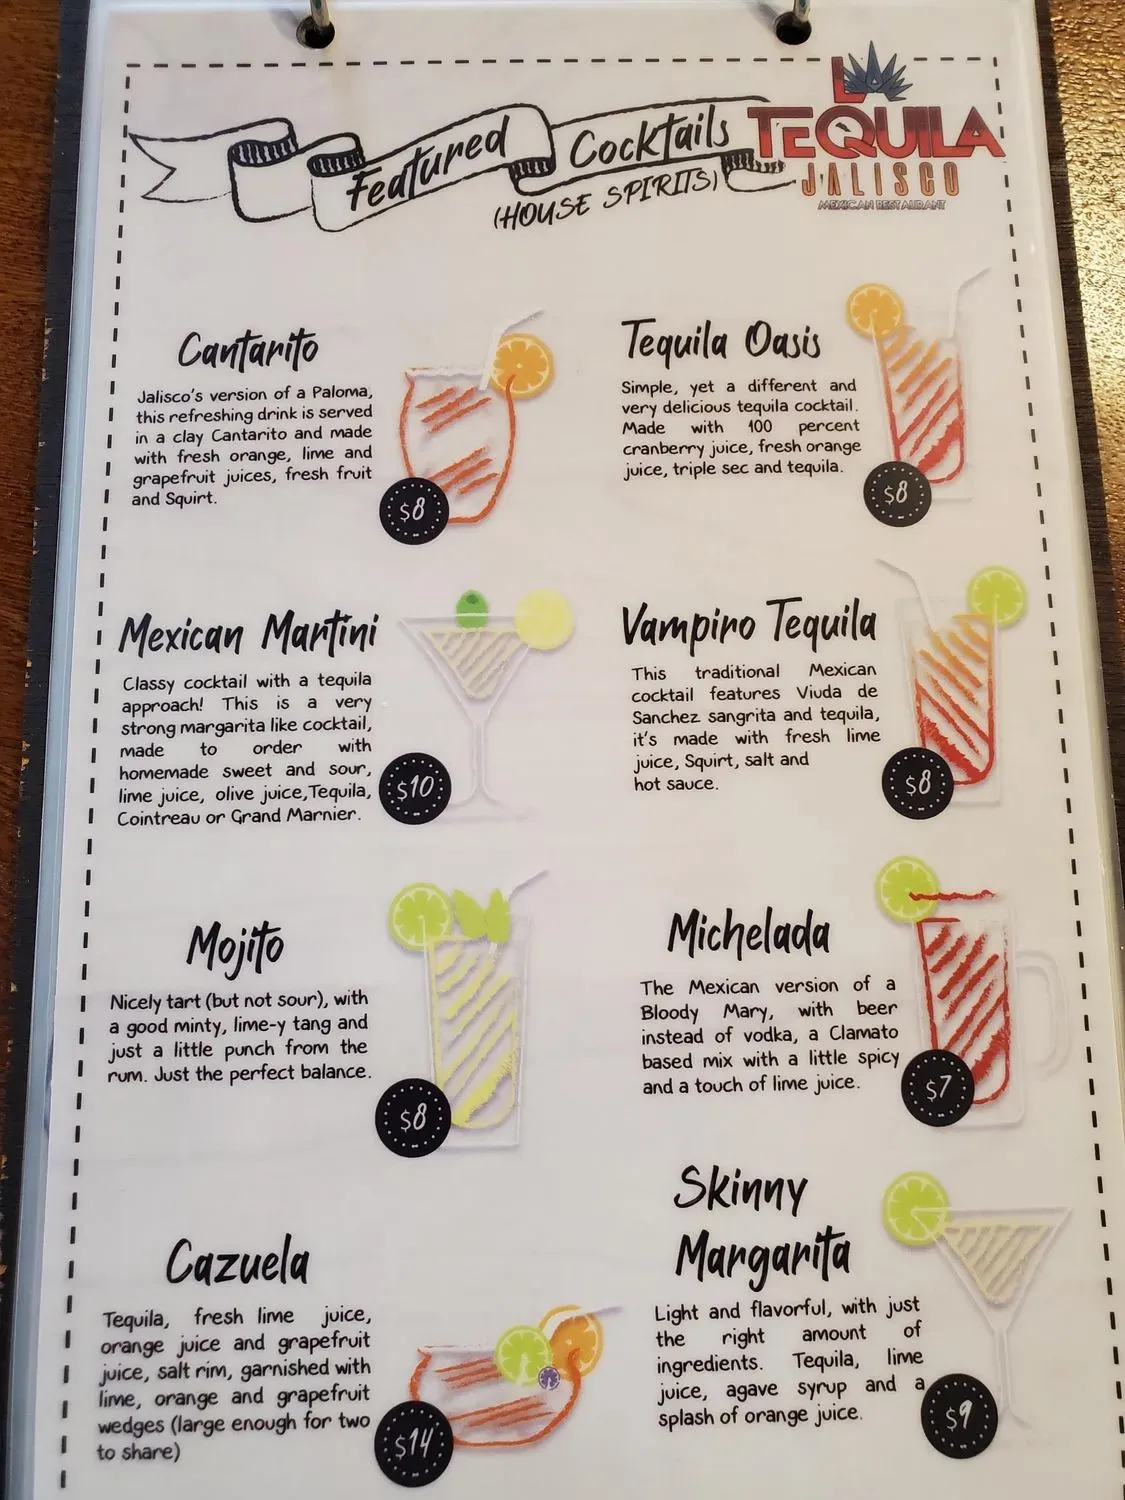 Featured Cocktails
(HOUSE SPIRITS)
LA
TEQUILA
JALISCO
MEXICAN RESTAURANT
Cantarito
Jalisco's version of a Paloma,
this refreshing drink is served
in a clay Cantarito and made
with fresh orange, lime and
grapefruit juices, fresh fruit
and Squirt.
$8
Tequila Oasis
Simple, yet a different and
very delicious tequila cocktail.
Made with 100 percent
cranberry juice, fresh orange
juice, triple sec and tequila.
$8
Mexican Martini
Classy cocktail with a tequila
approach! This is a very
strong margarita like cocktail,
made to order with
homemade sweet and sour,
lime juice, olive juice,Tequila,
Cointreau or Grand Marnier.
$10
Vampiro Tequila
This traditional Mexican
cocktail features Viuda de
Sanchez sangrita and tequila,
it's made with fresh lime
juice, Squirt, salt and
hot sauce.
$8
Mojito
Nicely tart (but not sour), with
a good minty, lime-y tang and
just a little punch from the
rum. Just the perfect balance.
$8
Michelada
The Mexican version of a
Bloody Mary, with beer
instead of vodka, a Clamato
based mix with a little spicy
and a touch of lime juice.
$7
Cazuela
Tequila, fresh lime juice,
orange juice and grapefruit
juice, salt rim, garnished with
lime, orange and grapefruit
wedges (large enough for two
to share)
$14
Skinny
Margarita
Light and flavorful, with just
the right amount of
ingredients. Tequila, lime
juice, agave syrup and a
splash of orange juice.
$9